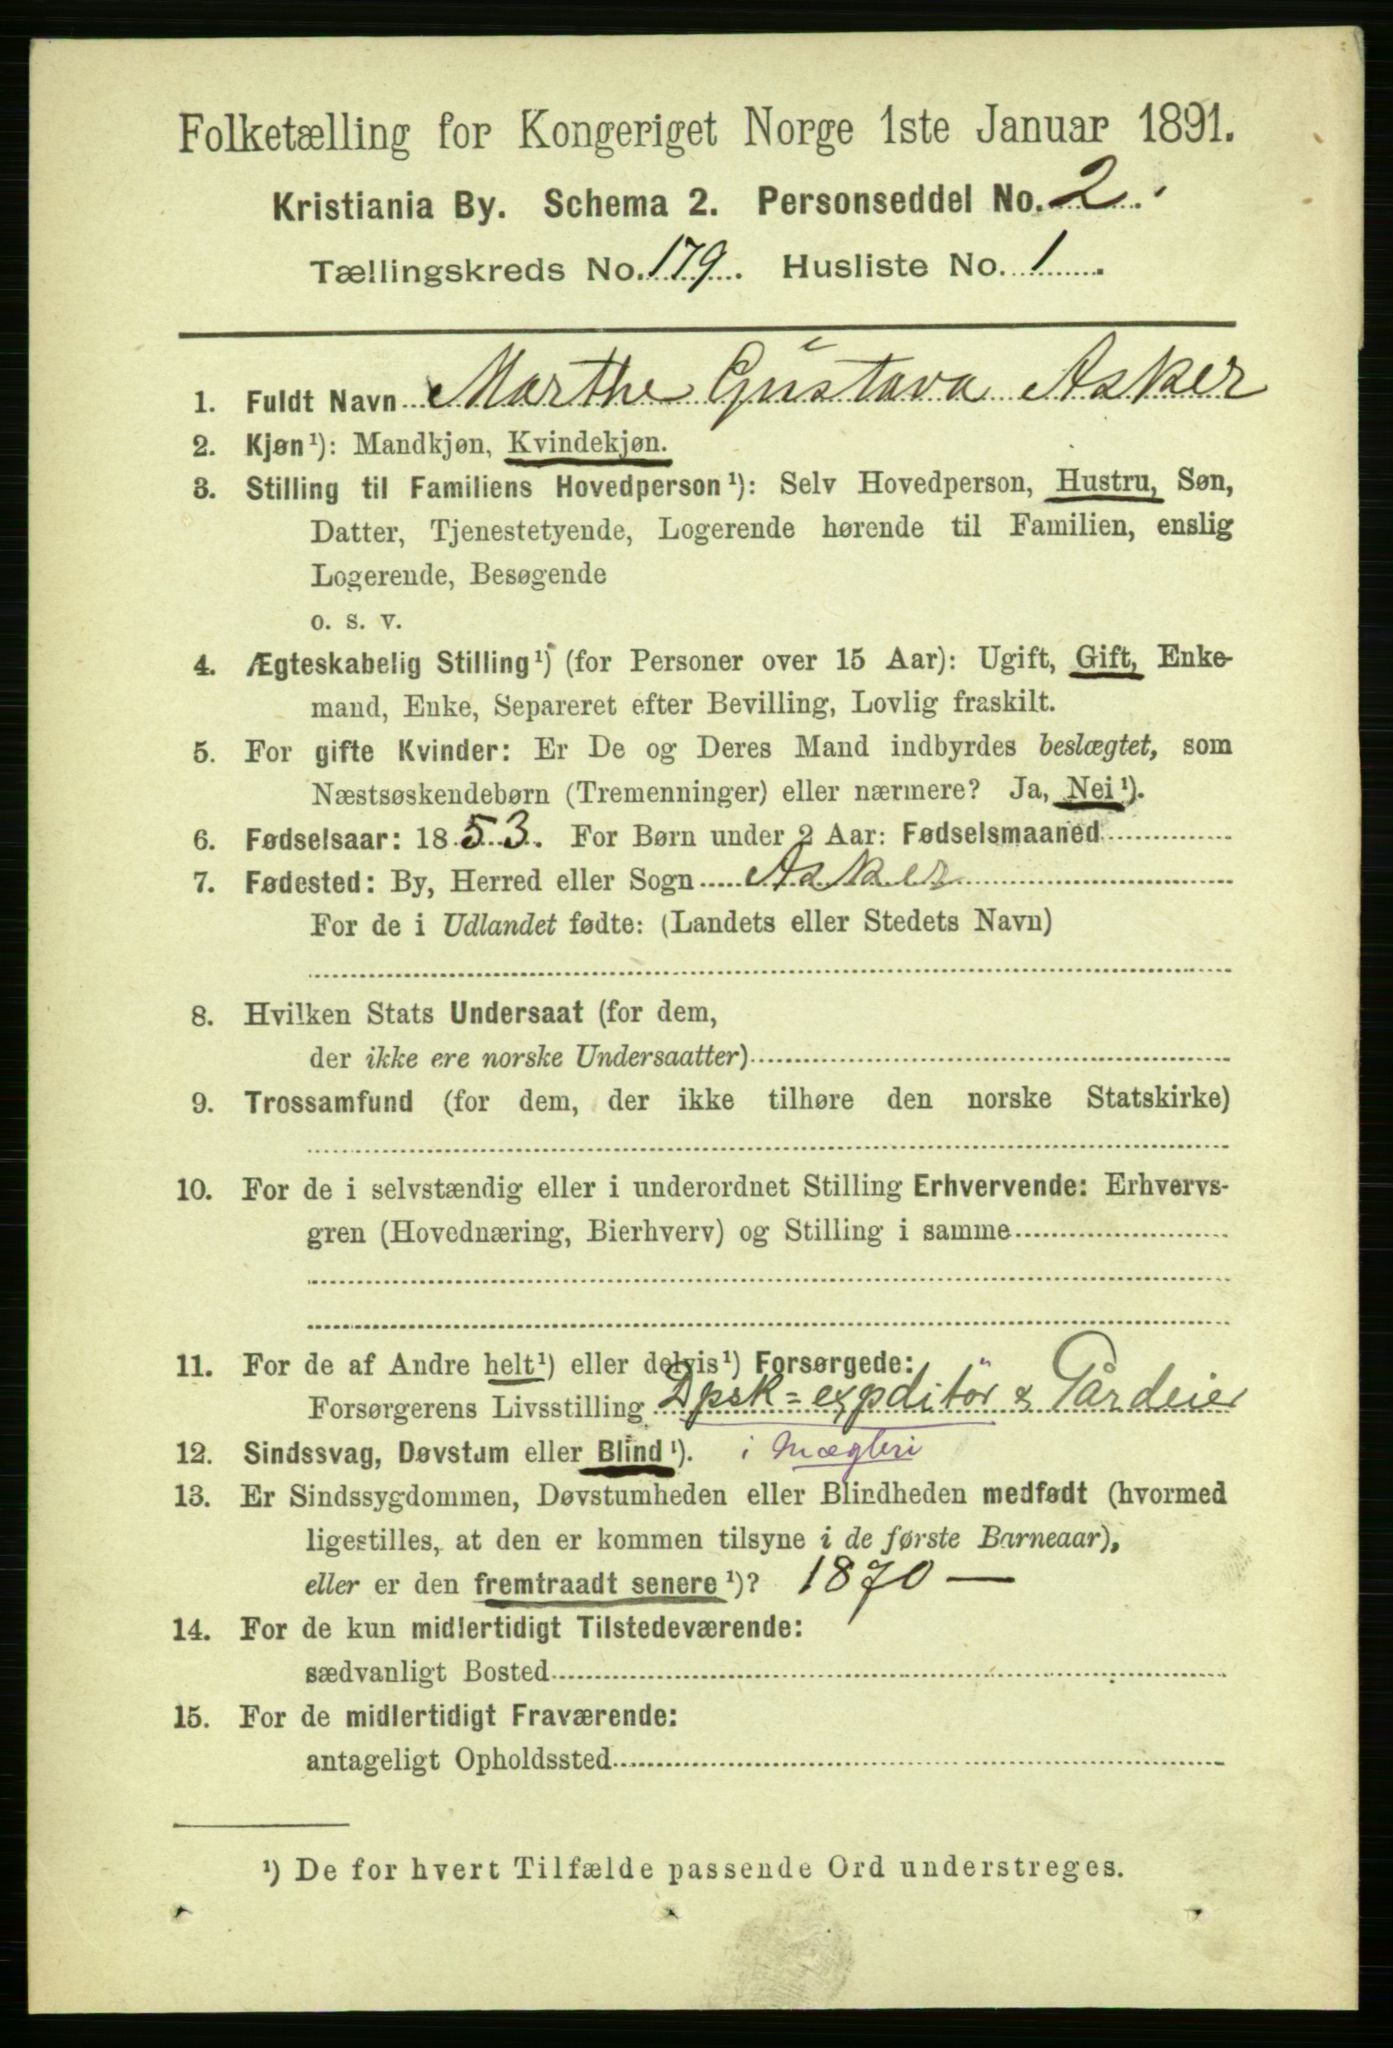 Folketælling for Kongeriget Norge 1ste Januar 1891.
Kristiania By. Schema 2. Personseddel No. 2.
Tællingskreds No. 179. Husliste No. 1.
1. Fuldt Navn Marthe Gustava Asker
2. Kjøn¹): Mandkjøn, Kvindekjøn.
3. Stilling til Familiens Hovedperson¹): Selv Hovedperson, Hustru, Søn,
Datter, Tjenestetyende, Logerende hørende til Familien, enslig
Logerende, Besøgende
o. s. v.
4. Ægteskabelig Stilling¹) (for Personer over 15 Aar): Ugift, Gift, Enke-
mand, Enke, Separeret efter Bevilling, Lovlig fraskilt.
5. For gifte Kvinder: Er De og Deres Mand indbyrdes beslægtet, som
Næstsøskendebørn (Tremenninger) eller nærmere? Ja, Nei¹).
6. Fødselsaar: 1853. For Børn under 2 Aar: Fødselsmaaned
7. Fødested: By, Herred eller Sogn Asker
For de i Udlandet fødte: (Landets eller Stedets Navn)
8. Hvilken Stats Undersaat (for dem,
der ikke ere norske Undersaatter)
9. Trossamfund (for dem, der ikke tilhøre den norske Statskirke)
10. For de i selvstændig eller i underordnet Stilling Erhvervende: Erhvervs-
gren (Hovednæring, Bierhverv) og Stilling i samme
11. For de af Andre helt¹) eller delvis¹) Forsørgede:
Forsørgerens Livsstilling Dpsk=expditör & Gårdeier
12. Sindssvag, Døvstum eller Blind¹). i Mægleri
13. Er Sindssygdommen, Døvstumheden eller Blindheden medfødt (hvormed
ligestilles, at den er kommen tilsyne i de første Barneaar),
eller er den fremtraadt senere¹)? 1870 —
14. For de kun midlertidigt Tilstedeværende:
sædvanligt Bosted
15. For de midlertidigt Fraværende:
antageligt Opholdssted
¹) De for hvert Tilfælde passende Ord understreges.